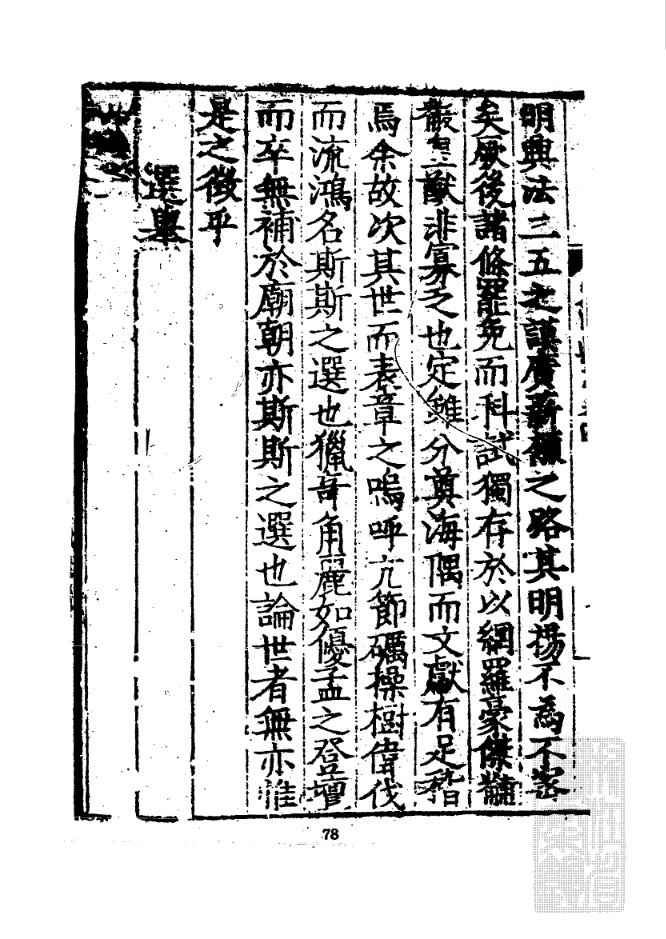 明興法三五之謨廣薪槱之路其明揚不為不密
矣厥後諸條罷免而科試獨存於以網羅豪傑黼
黻皇猷非寡乏也定雖分奠海隅而文獻有足稽
焉余故次其世而表章之嗚呼亢節礪操樹偉伐
而流鴻名斯斯之選也獵奇角麗如優孟之登壇
而卒無補於廟朝亦斯斯之選也論世者無亦惟
是之徵乎
選舉
78